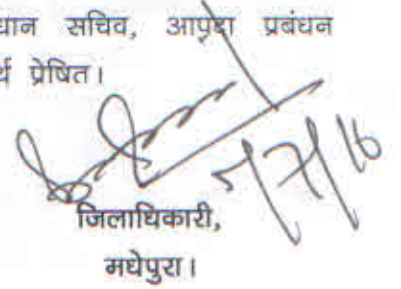 धान सचिव, आपदा प्रबंधन
र्थ प्रेषित।
5/7/16
जिलाधिकारी,
मधेपुरा।